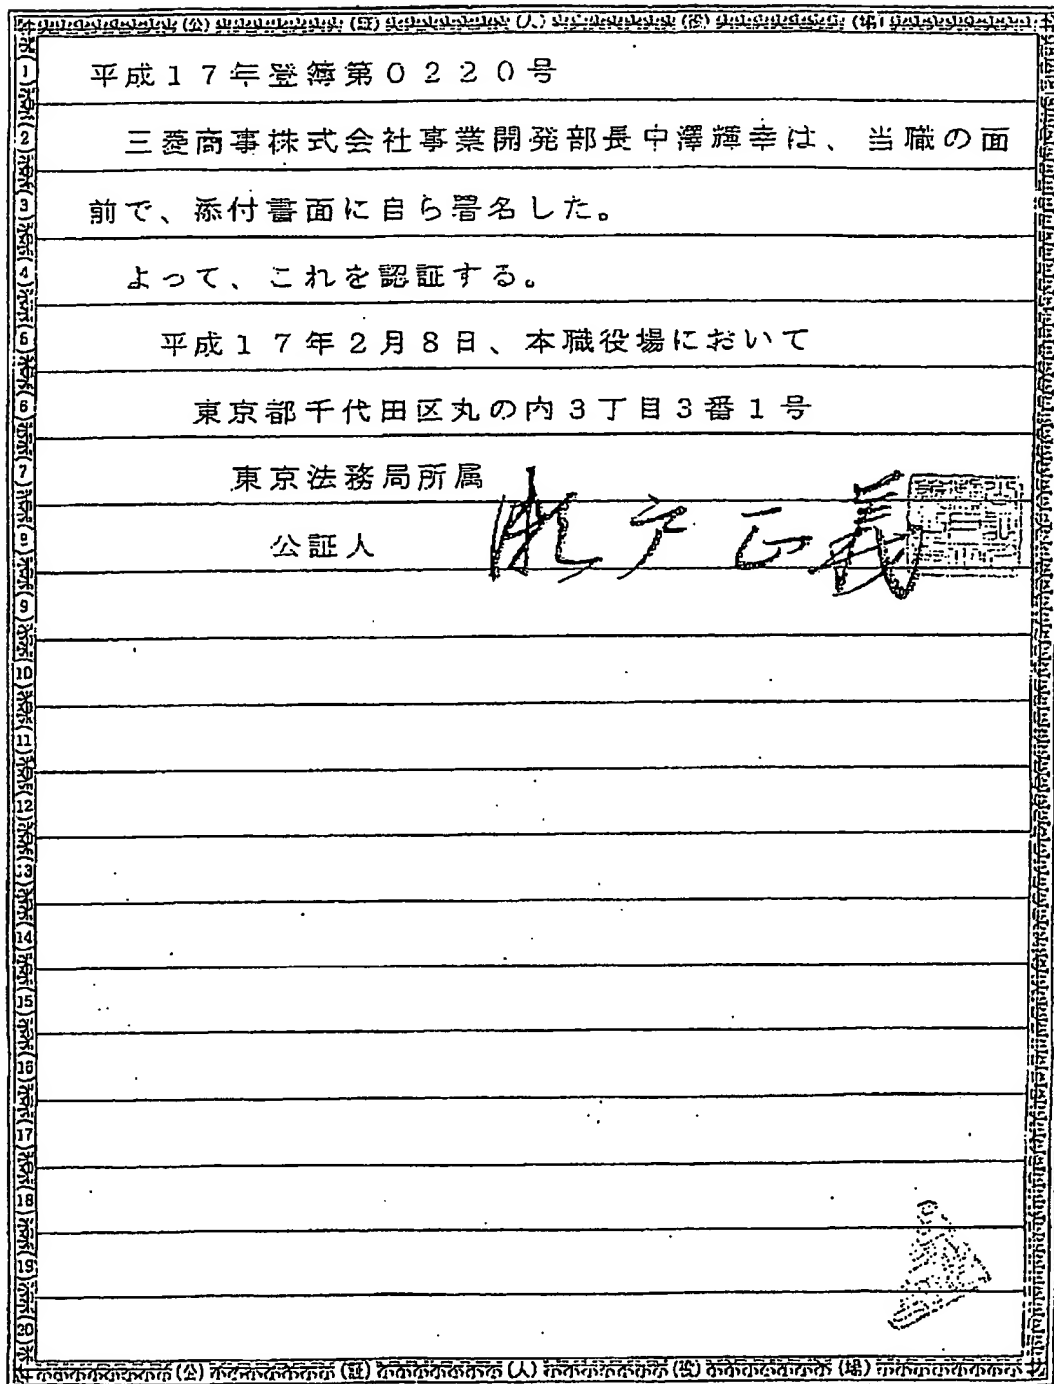 (公) (証) (人) (役) (場)
平成17年登簿第0220号
三菱商事株式会社事業開発部長中澤輝幸は、当職の面
前で、添付書面に自ら署名した。
よって、これを認証する。
平成17年2月8日、本職役場において
東京都千代田区丸の内3丁目3番1号
東京法務局所属
公証人
1
2
3
4
5
6
7
8
9
10
11
12
13
14
15
16
17
18
19
20
(公) (証) (人) (役) (場)